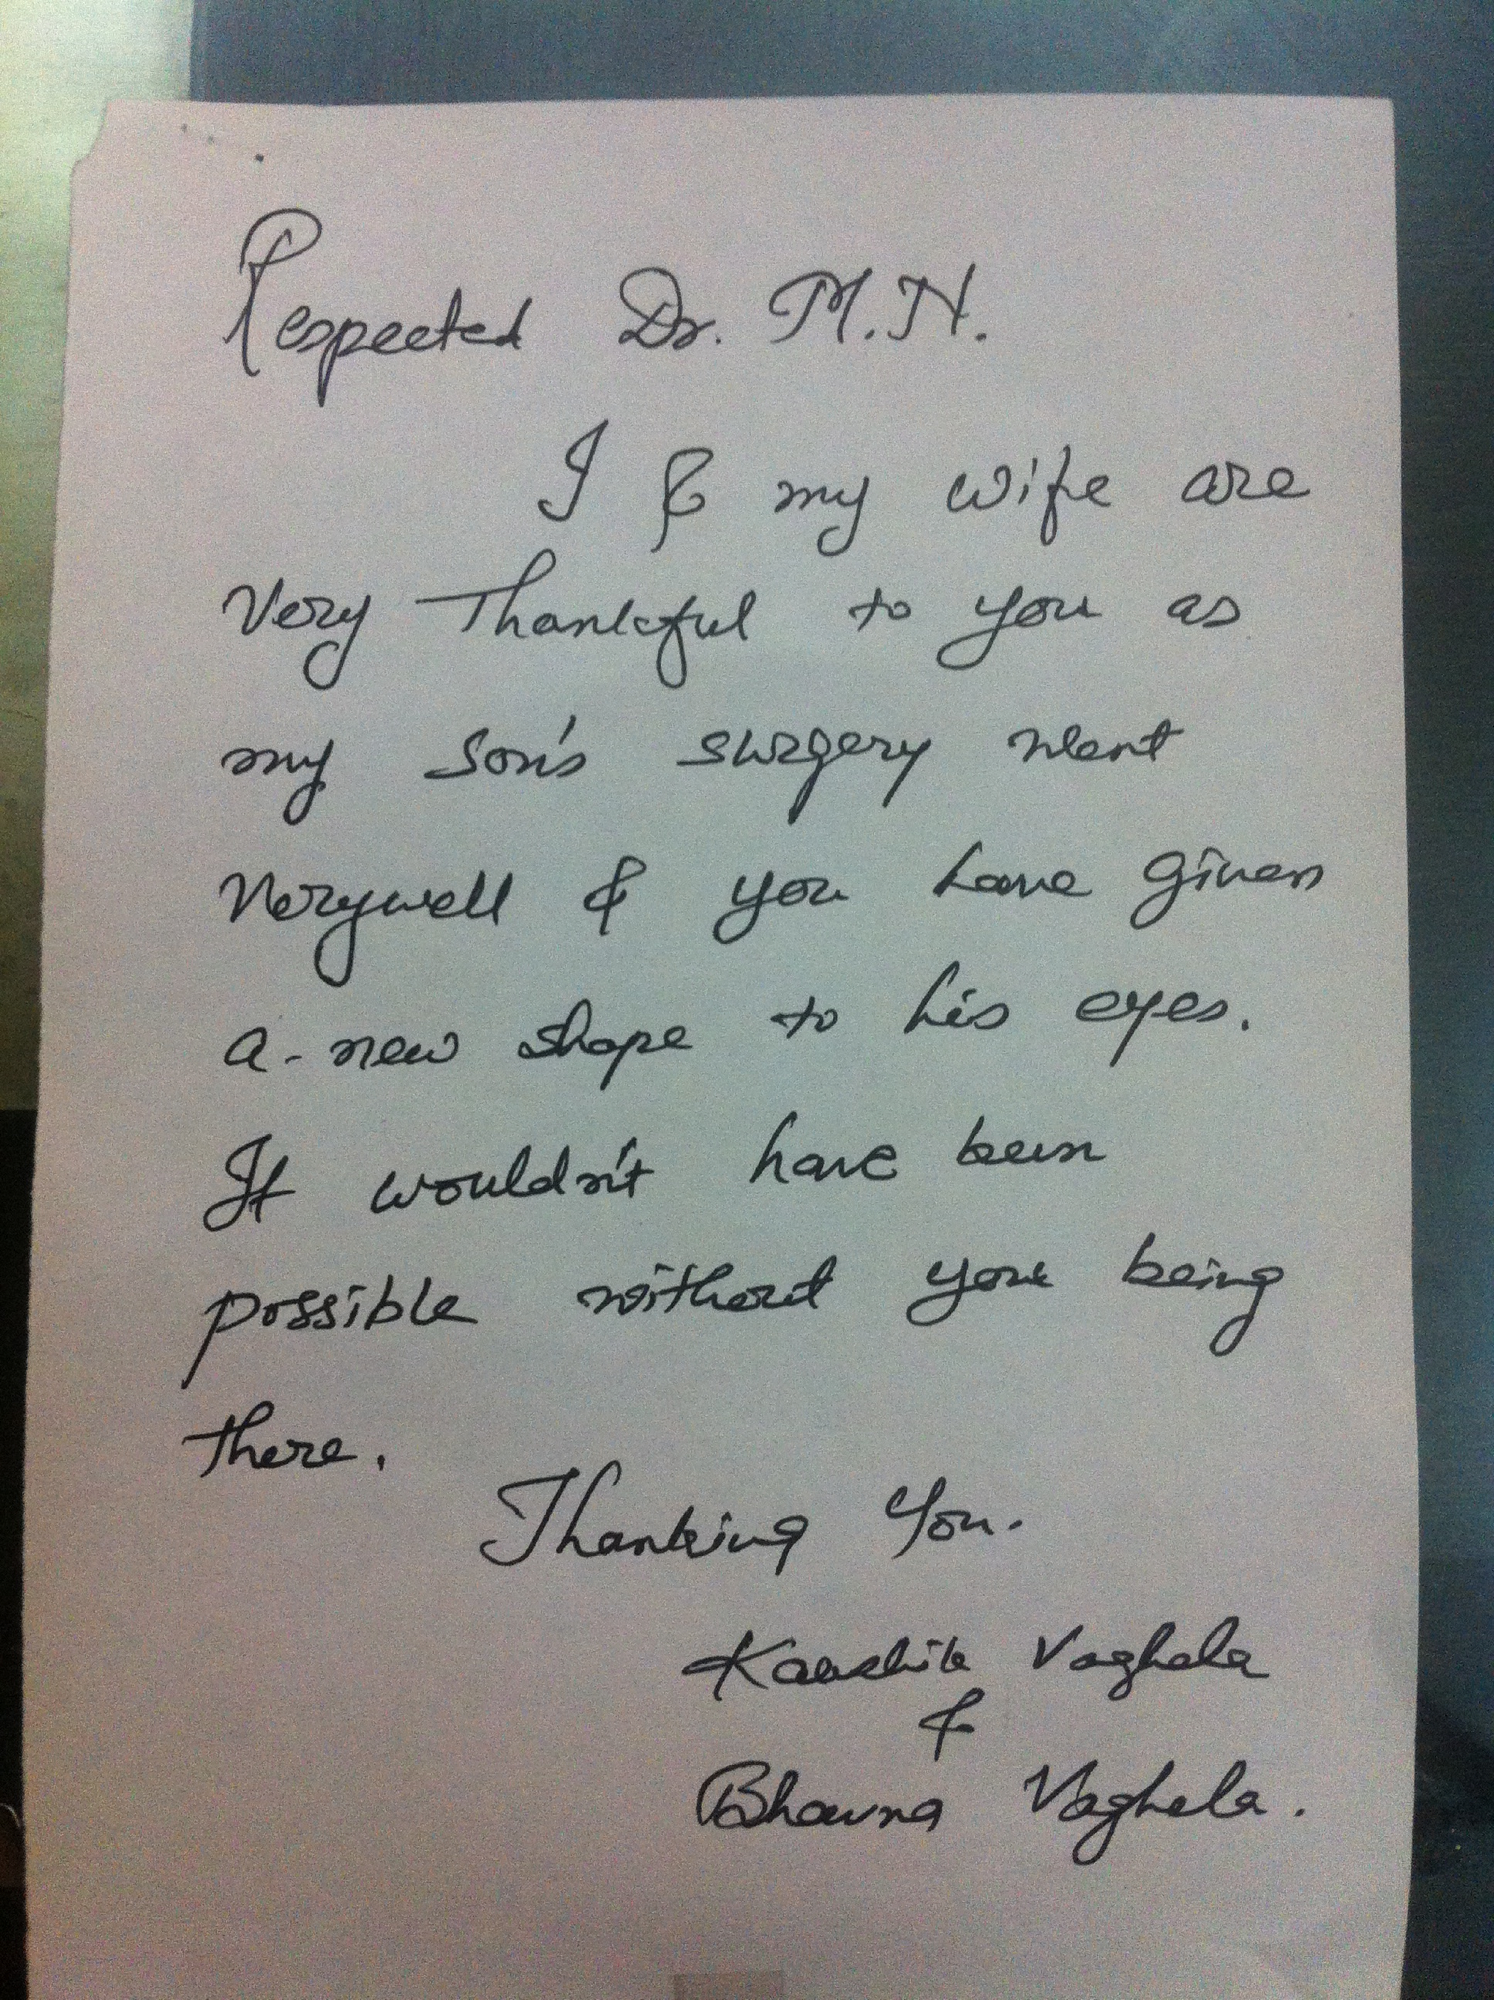 Respected Dr. M.N.
I & my wife are
very Thankful to you as
my son's surgery went
Verywell & you have given
a-new shape to his eyes.
It wouldn't have been
possible without you being
there.
Thanking You.
Kaushik Vaghela
&
Bhavna Vaghela.